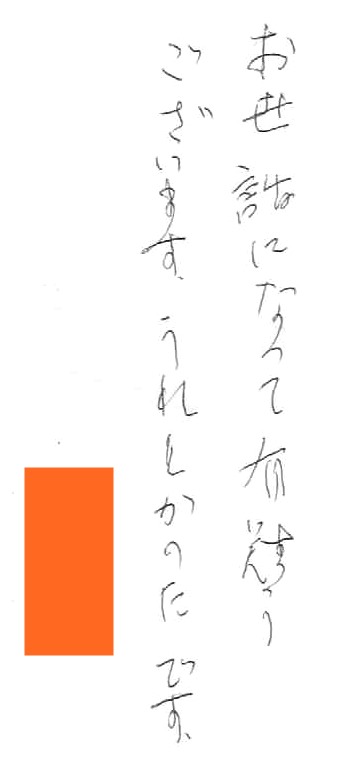 お世話になって有難う
ございます、うれしかったです、